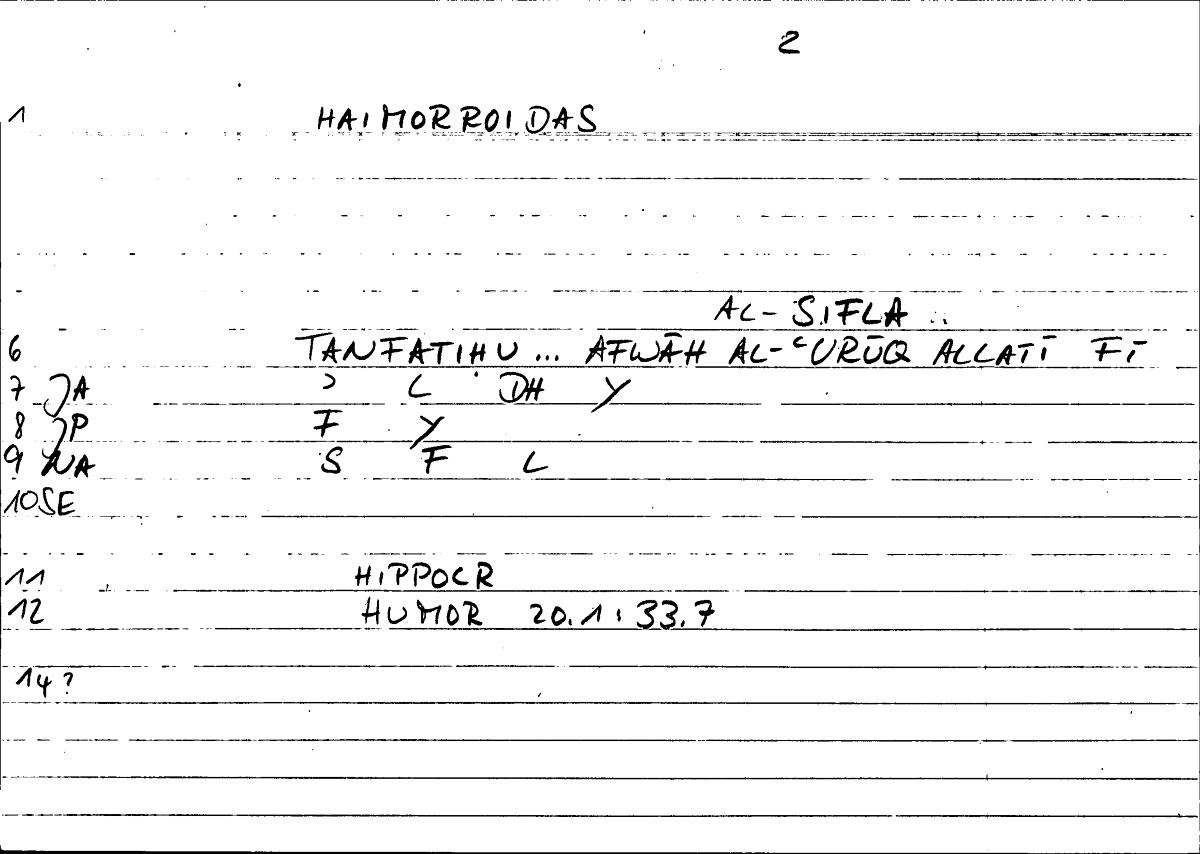 2
1 HAIMORROIDAS
AL-SIFLA ..
6 TANFATIHU ... AFWĀH AL-ʿURŪQ ALLATĪ FĪ
7 JA ʾ L DH Y
8 JP F Y
9 NA S F L
10 SE
11 HIPPOCR
12 HUMOR 20.1 : 33.7
14?